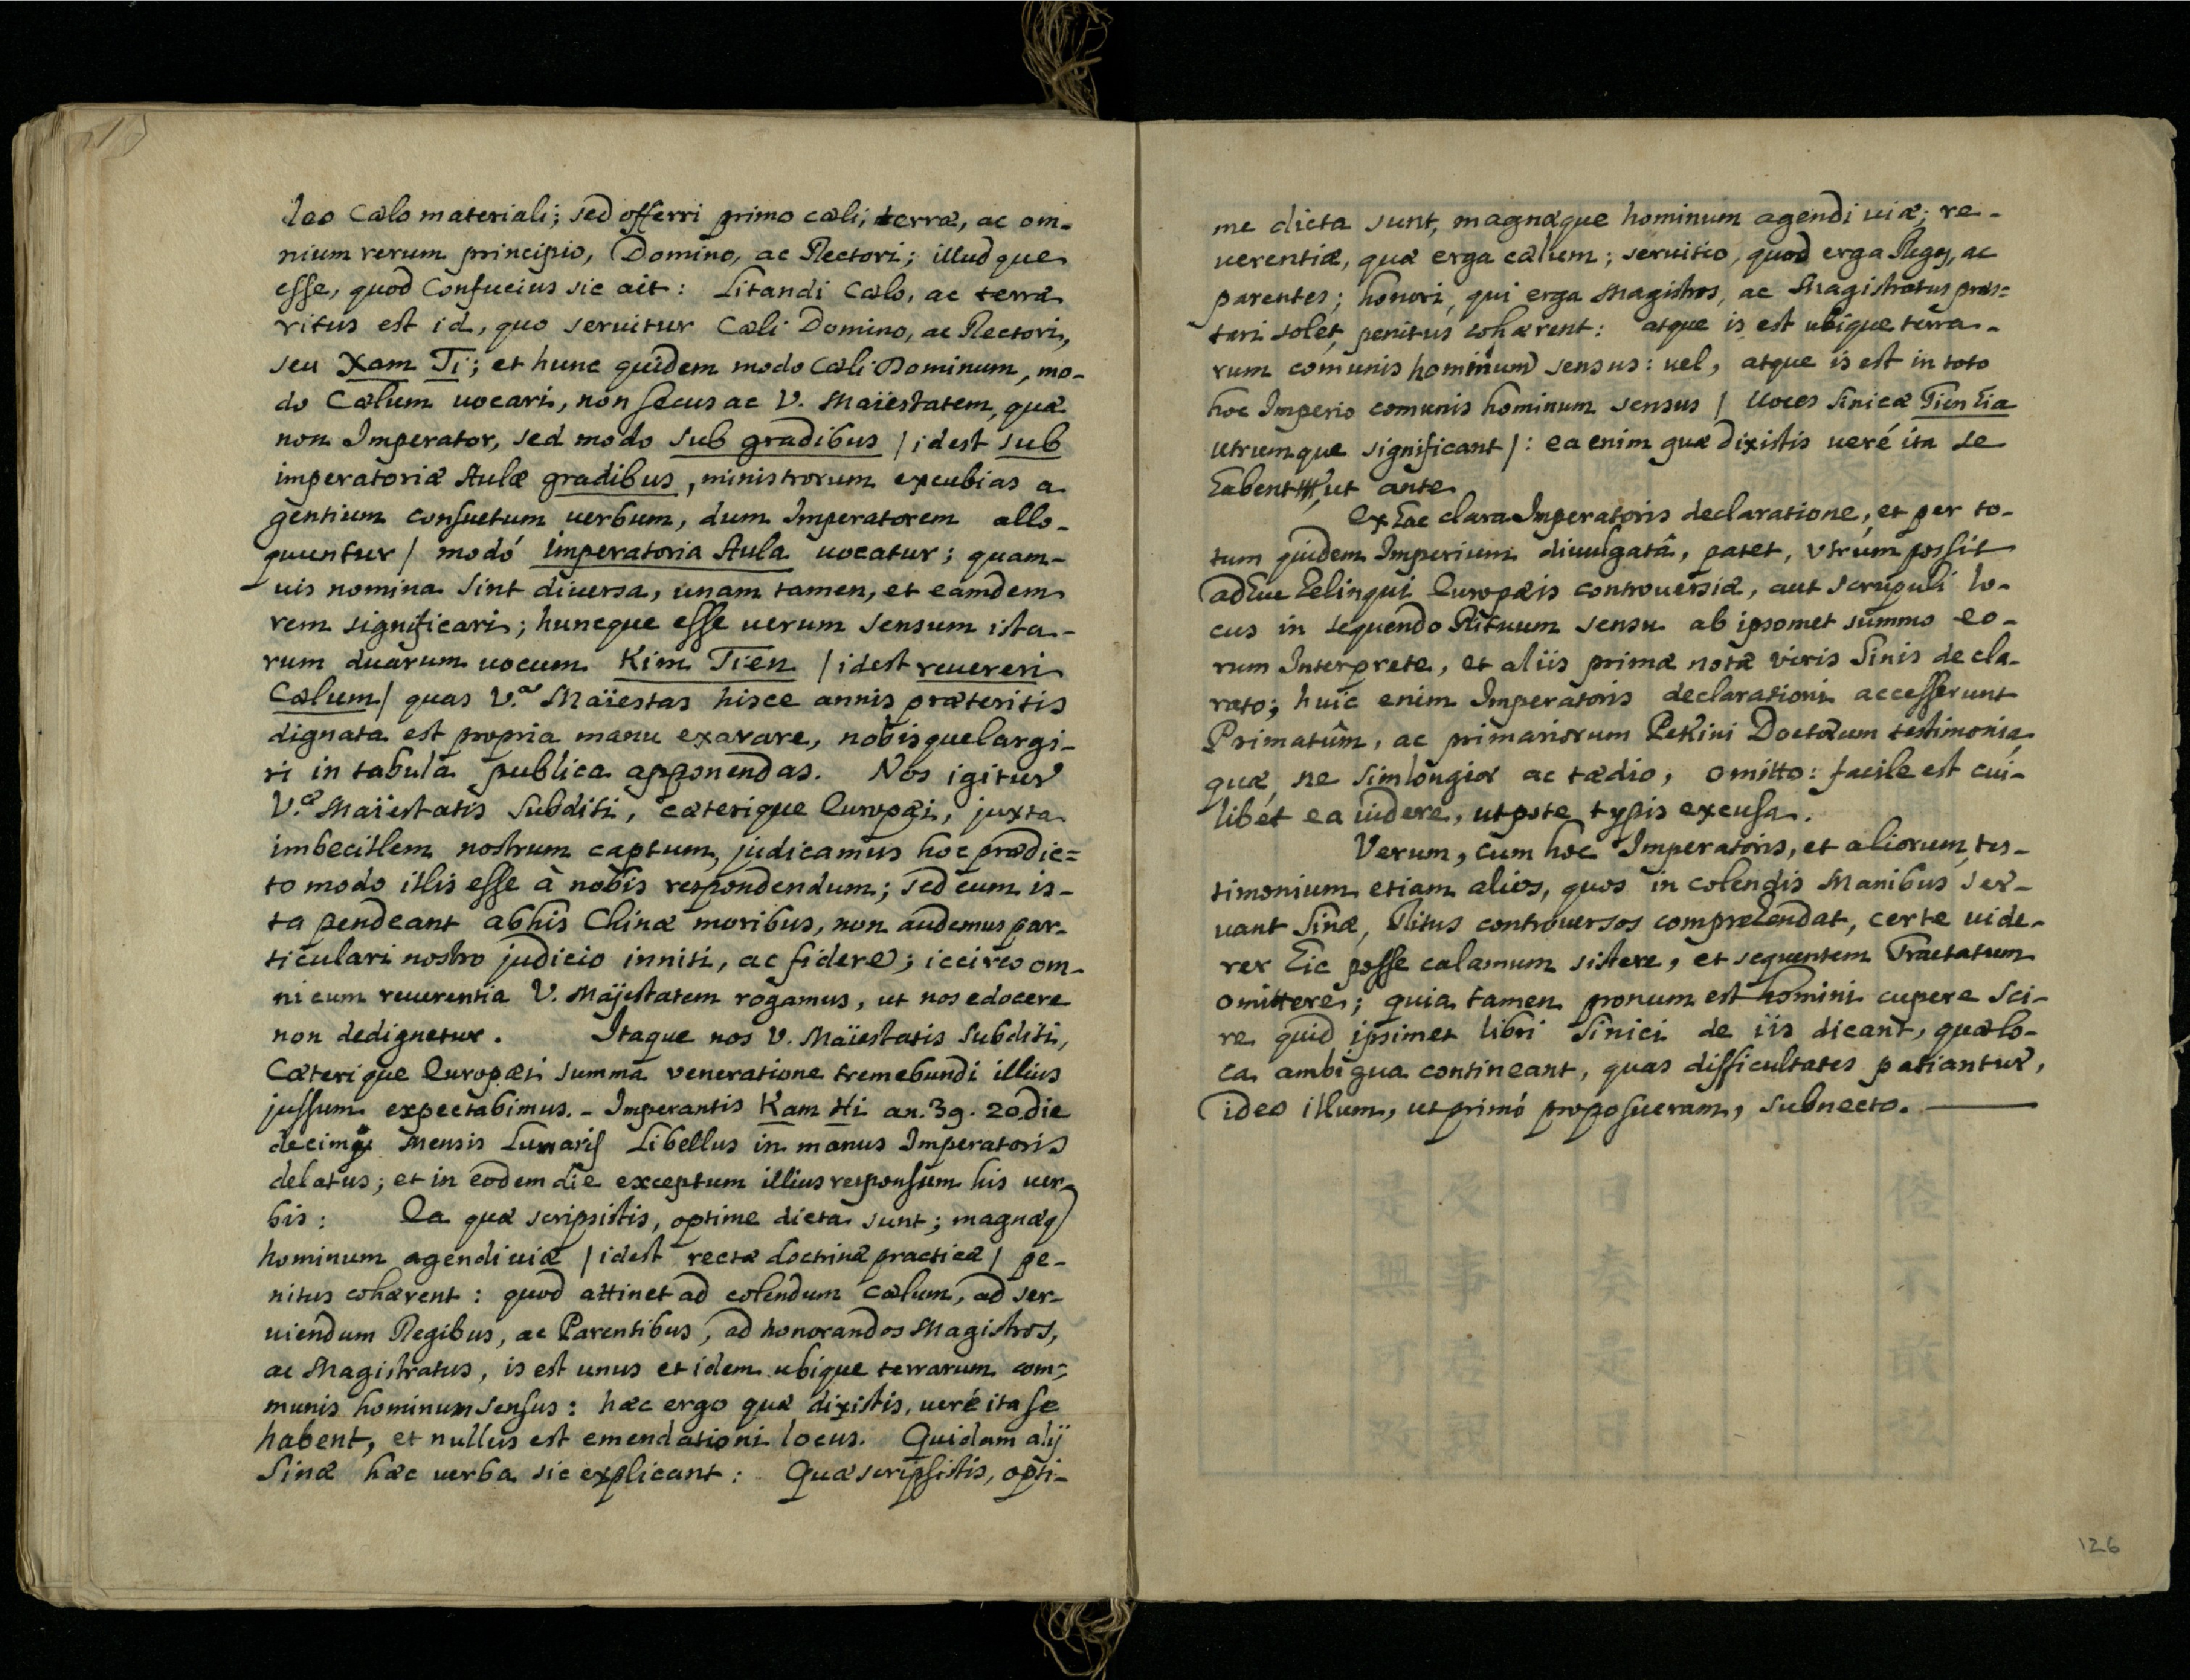 leo Cælo materiali; sed offerri primo cæli, terræ, ac om-
nium rerum principio, Domino, ac Rectori; illudque
esse, quod Confucius sic ait: Litandi Cælo, ac terræ
ritus est id, quo seruitur Cæli Domino, ac Rectori,
seu Xam Ti; et hunc quidem modo Cæli Dominum, mo-
do Cælum uocari, non secus ac V. Maiestatem, quæ
non Imperator, sed modo sub gradibus / idest sub
imperatoriæ Aulæ gradibus, ministrorum excubias a
gentium consuetum uerbum, dum Imperatorem allo-
quuntur / modó Imperatoria Aula uocatur; quam-
uis nomina sint diuersa, unam tamen, et eamdem
rem significari; huncque esse uerum sensum ista-
rum duarum uocum Kim Tien / idest reuereri
Cælum / quas V.ª Maiestas hisce annis præteritis
dignata est propria manu exarare, nobisque largi-
ri in tabula publica apponendas. Nos igitur
V.æ Maiestatis Subditi, cæterique Europæi, juxta
imbecillem nostrum captum, judicamus hoc prædic=
to modo illis esse à nobis respondendum; sed cum is-
ta pendeant abhis Chinæ moribus, non audemus par-
ticulari nostro judicio inniti, ac fidere; iccirco om-
ni cum reuerentia V. Majestatem rogamus, ut nos edocere
non dedignetur. Itaque nos V. Maiestatis Subditi,
Cæterique Europæi summa veneratione tremebundi illius
jussum expectabimus. - Imperantis Kam Hi an. 39. 20. die
decimæ mensis Lunaris Libellus in manus Imperatoris
delatus; et in eodem die exceptum illius responsum his uer-
bis: Ea quæ scripsistis, optime dicta sunt; magnæq
hominum agendi uiæ / idest rectæ doctrinæ practicæ / pe-
nitus cohærent: quod attinet ad colendum Cælum, ad ser-
uiendum Regibus, ac Parentibus, ad honorandos Magistros,
ac Magistratus, is est unus et idem ubique terrarum com=
munis hominum sensus: hæc ergo quæ dixistis, ueré ita se
habent, et nullus est emendationi locus. Quidam alij
Sinæ hæc uerba sic explicant: Quæ scripsistis, opti-
me dicta sunt, magnæque hominum agendi uiæ; re-
uerentiæ, quæ erga cælum; seruitio, quod erga Reges, ac
parentes; honori, qui erga Magistros, ac Magistratus præs=
tari solet, penitus cohærent: atque is est ubique terra-
rum comunis hominum sensus: uel, atque is est in toto
hoc Imperio comunis hominum sensus / Uoces Sinicæ Tien hia
utrumque significant /: ea enim quæ dixistis ueré ita se
habent, ut ante.
Ex hac clara Imperatoris declaratione, et per to-
tum quidem Imperium diuulgatâ, patet, vtrúm possit
adhuc relinqui Europæis controuersiæ, aut scrupuli lo-
cus in sequendo Rituum sensu ab ipsomet summo eo-
rum Interprete, et aliis primæ notæ viris Sinis decla-
rato; huic enim Imperatoris declarationi accesserunt
Primatûm, ac primariorum Pekini Doctorum testimonia,
quæ, ne sim longior ac tædio, omitto: facile est cui-
libét ea uidere, utpote typis excusa.
Verum, cum hoc Imperatoris, et aliorum tes-
timonium etiam alios, quos in colendis Manibus ser-
uant Sinæ, Ritus controuersos comprehendat, certe uide-
rer hic posse calamum sistere, et sequentem Tractatum
omittere; quia tamen pronum est homini cupere sci-
re quid ipsimet libri Sinici de iis dicant, quæ lo-
ca ambigua contineant, quas difficultates patiantur,
ideo illum, ut primó proposueram, subnecto.
126